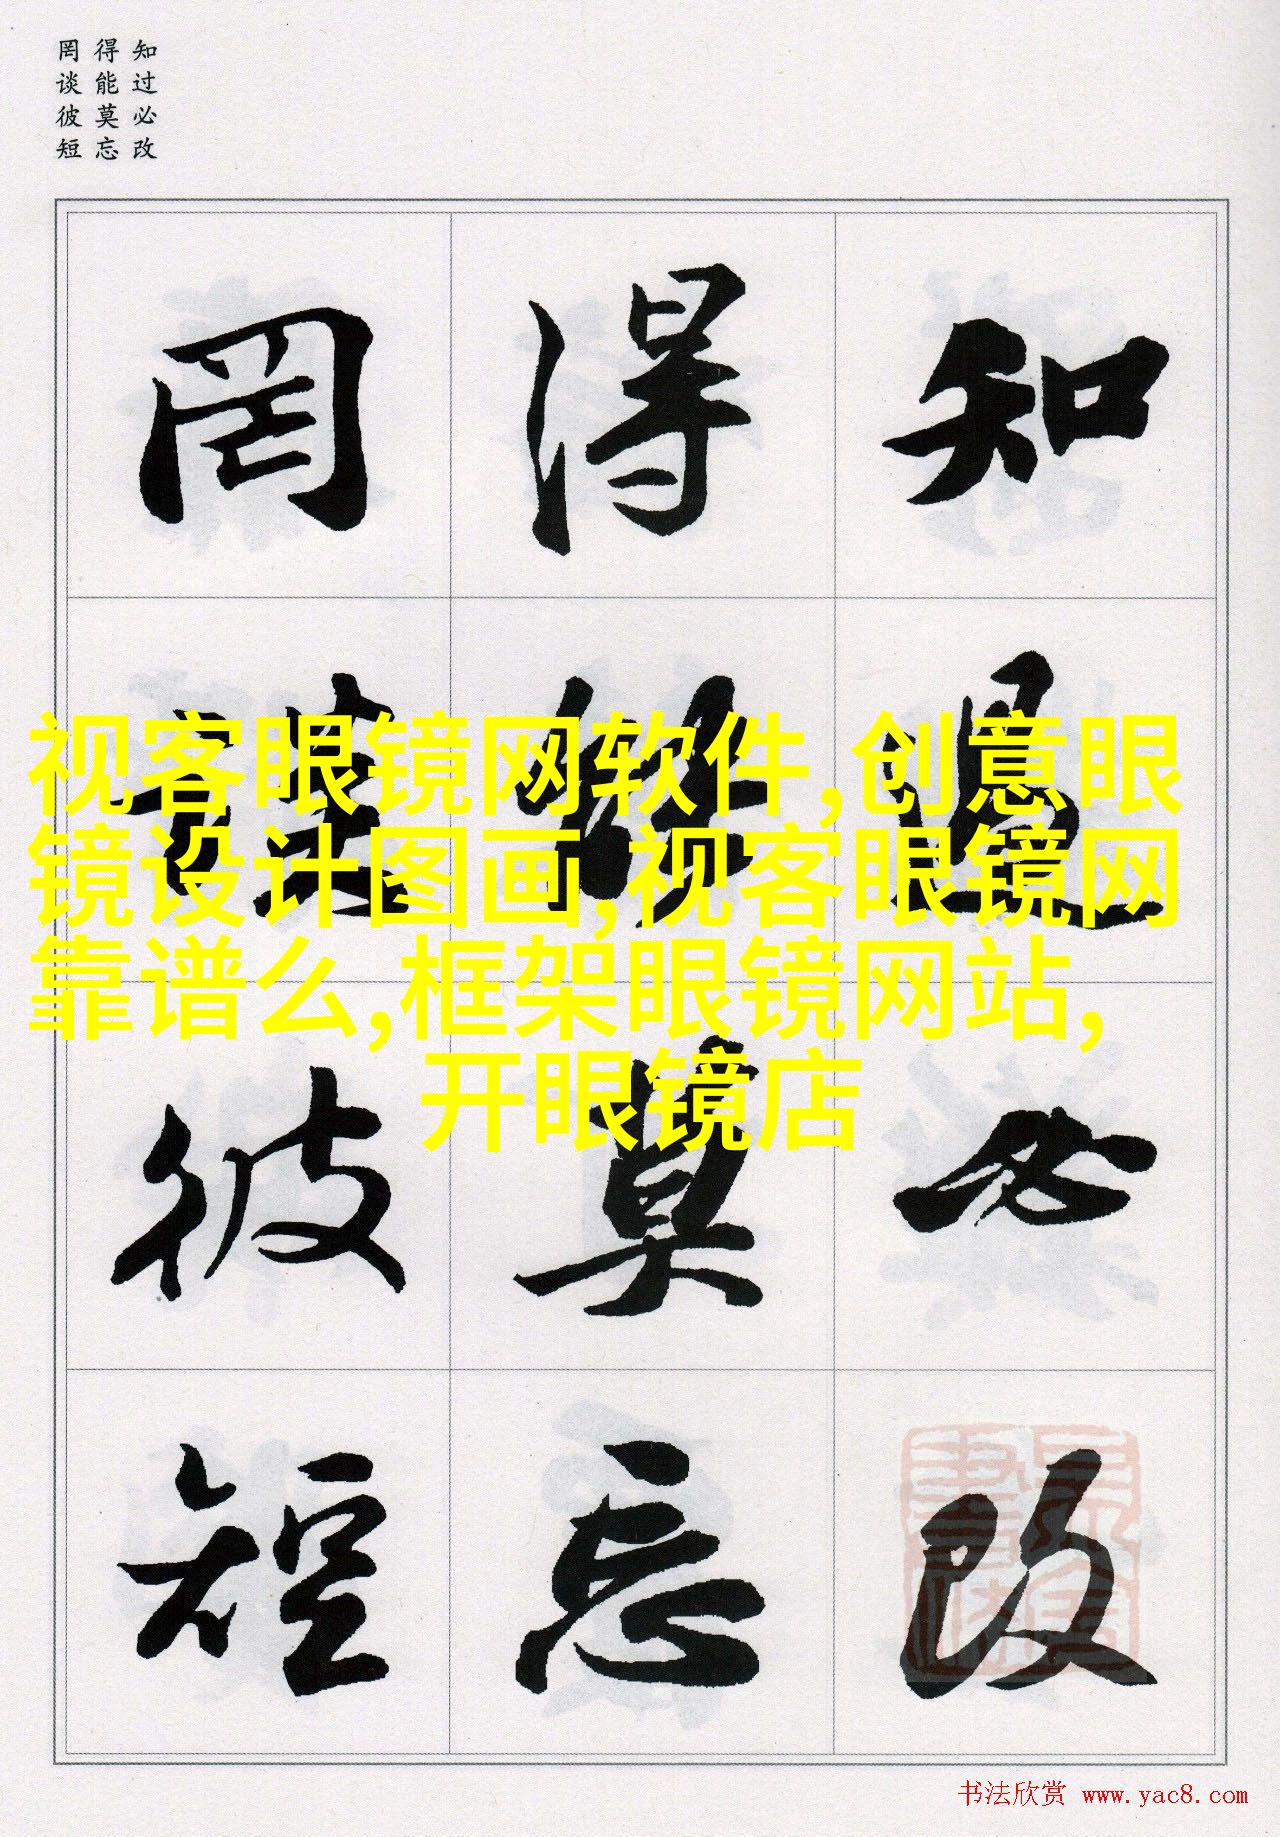 知过必改
得能莫忘
罔谈彼短
知過必改
得能莫忘
罔談彼短
视客眼镜网软件,创意眼
镜设计图画,视客眼镜网
靠谱么,框架眼镜网站,
开眼镜店
书法欣赏 www.yac8.com